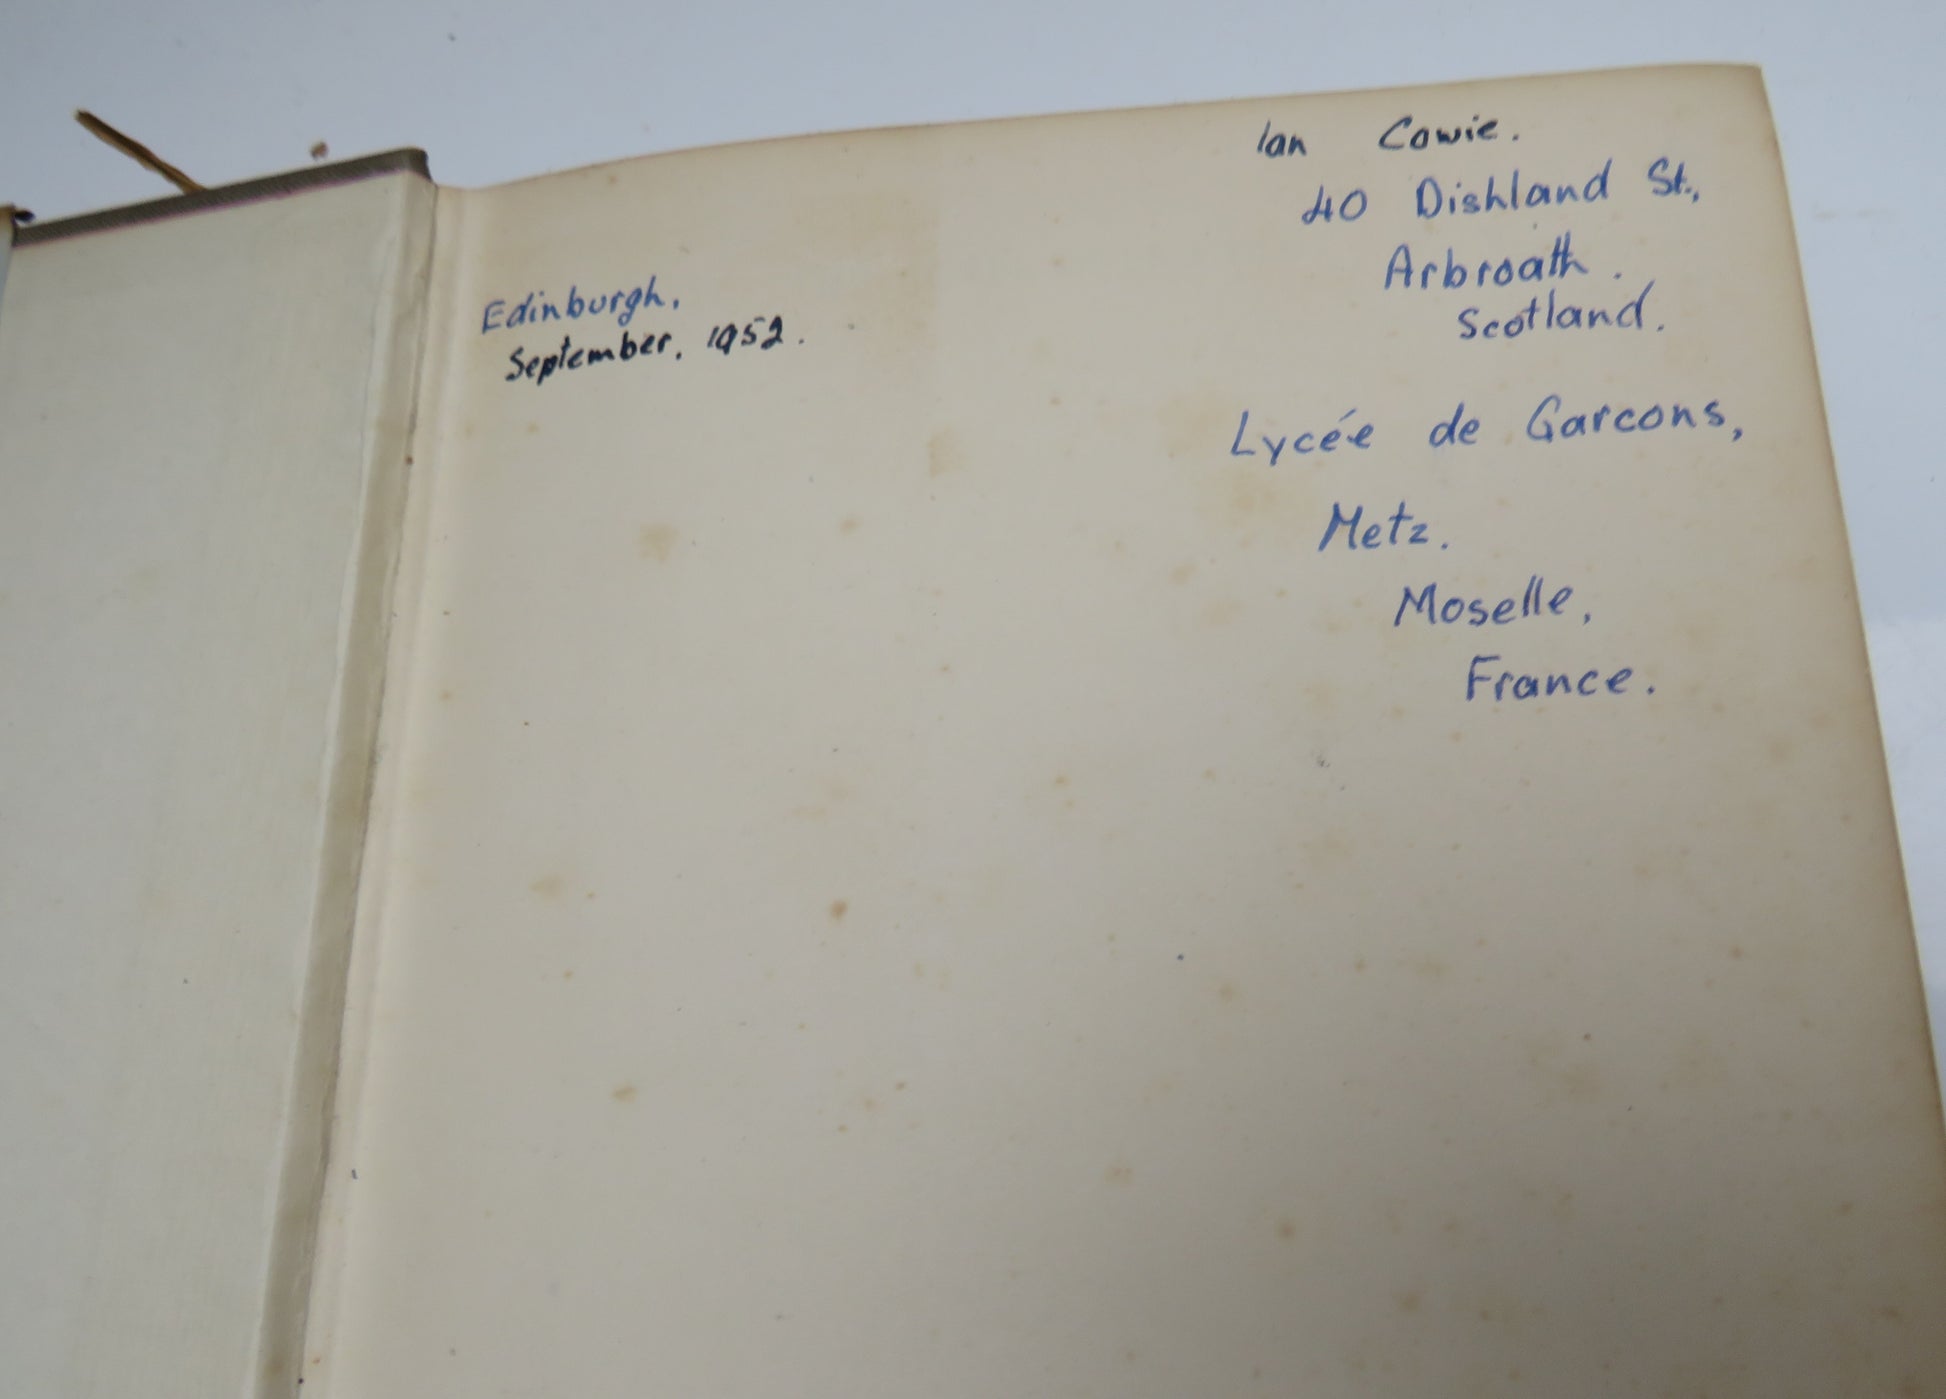 Ian Cowie.
40 Dishland St.,
Arbroath.
Scotland.
Edinburgh.
September. 1952.
Lycée de Garcons,
Metz.
Moselle,
France.